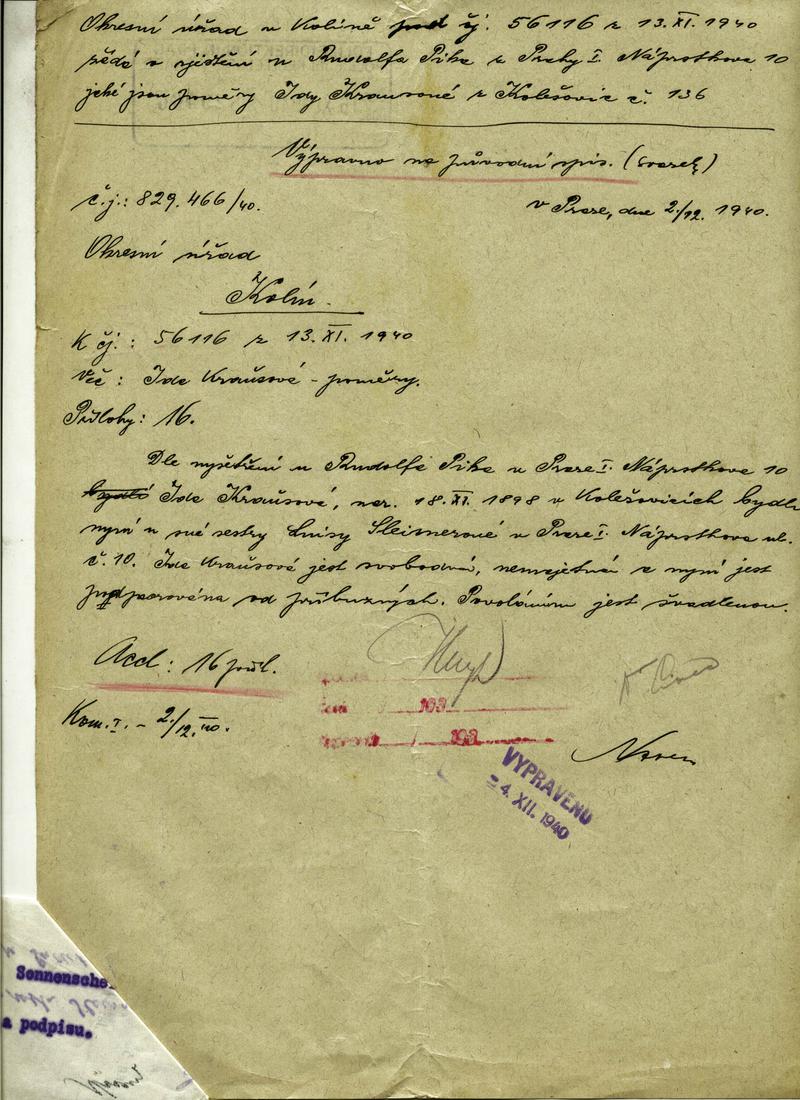 Okresní úřad v Kolíně pod čj. 56116 z 13.XI. 1940
žádá o zjištění u Rudolfa Pika z Prahy I. Náprstkova 10
jaké jsou poměry Idy Krausové z Kolešovic č. 136
Vypraveno na původní spis. (svazek)
č.j.: 829.466/40.
v Praze, dne 2./12. 1940.
Okresní úřad
Kolín.
K čj.: 56116 z 13.XI. 1940
Věc: Ida Krausová - poměry.
Přílohy: 16.
Dle vyšetření u Rudolfa Pika v Praze I. Náprstkova 10
bydlí Ida Krausová, nar. 18.XI. 1898 v Kolešovicích bydlí
nyní u své sestry Luisy Sleisnerové v Praze I. Náprstkova ul.
č. 10. Ida Krausová jest svobodná, nemajetná a nyní jest
podporována od příbuzných. Povoláním jest švadlenou.
Acd: 16 příl.
Kom. I. - 2./12.40.
193
193
VYPRAVENO
4. XII. 1940
Sonnensche
a podpisu.